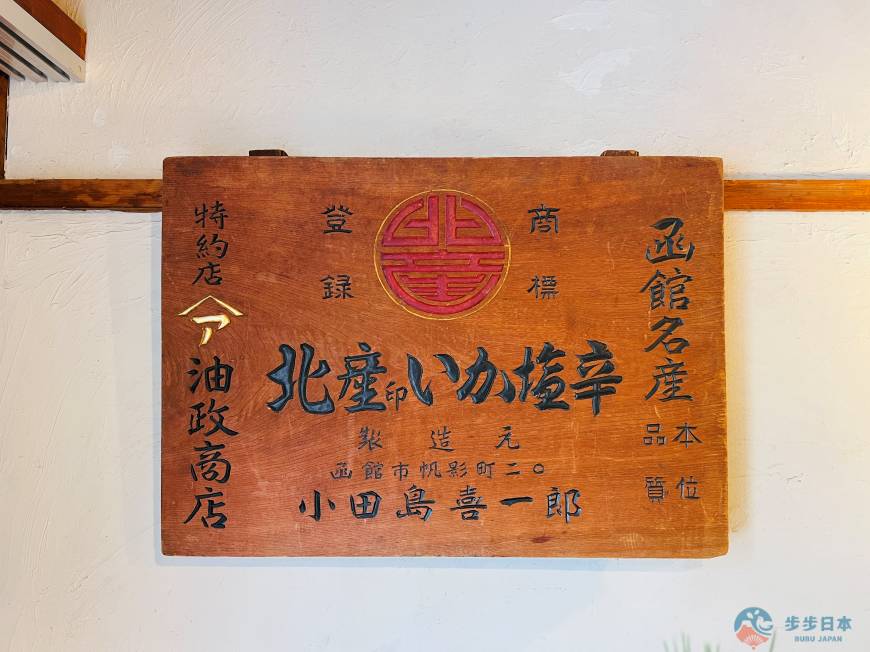 函館名産
品質本位
商標
登録
北産
北産印いか塩辛
製造元
函館市帆影町二〇
小田島喜一郎
特約店
ア
油政商店
步步日本
BUBU JAPAN